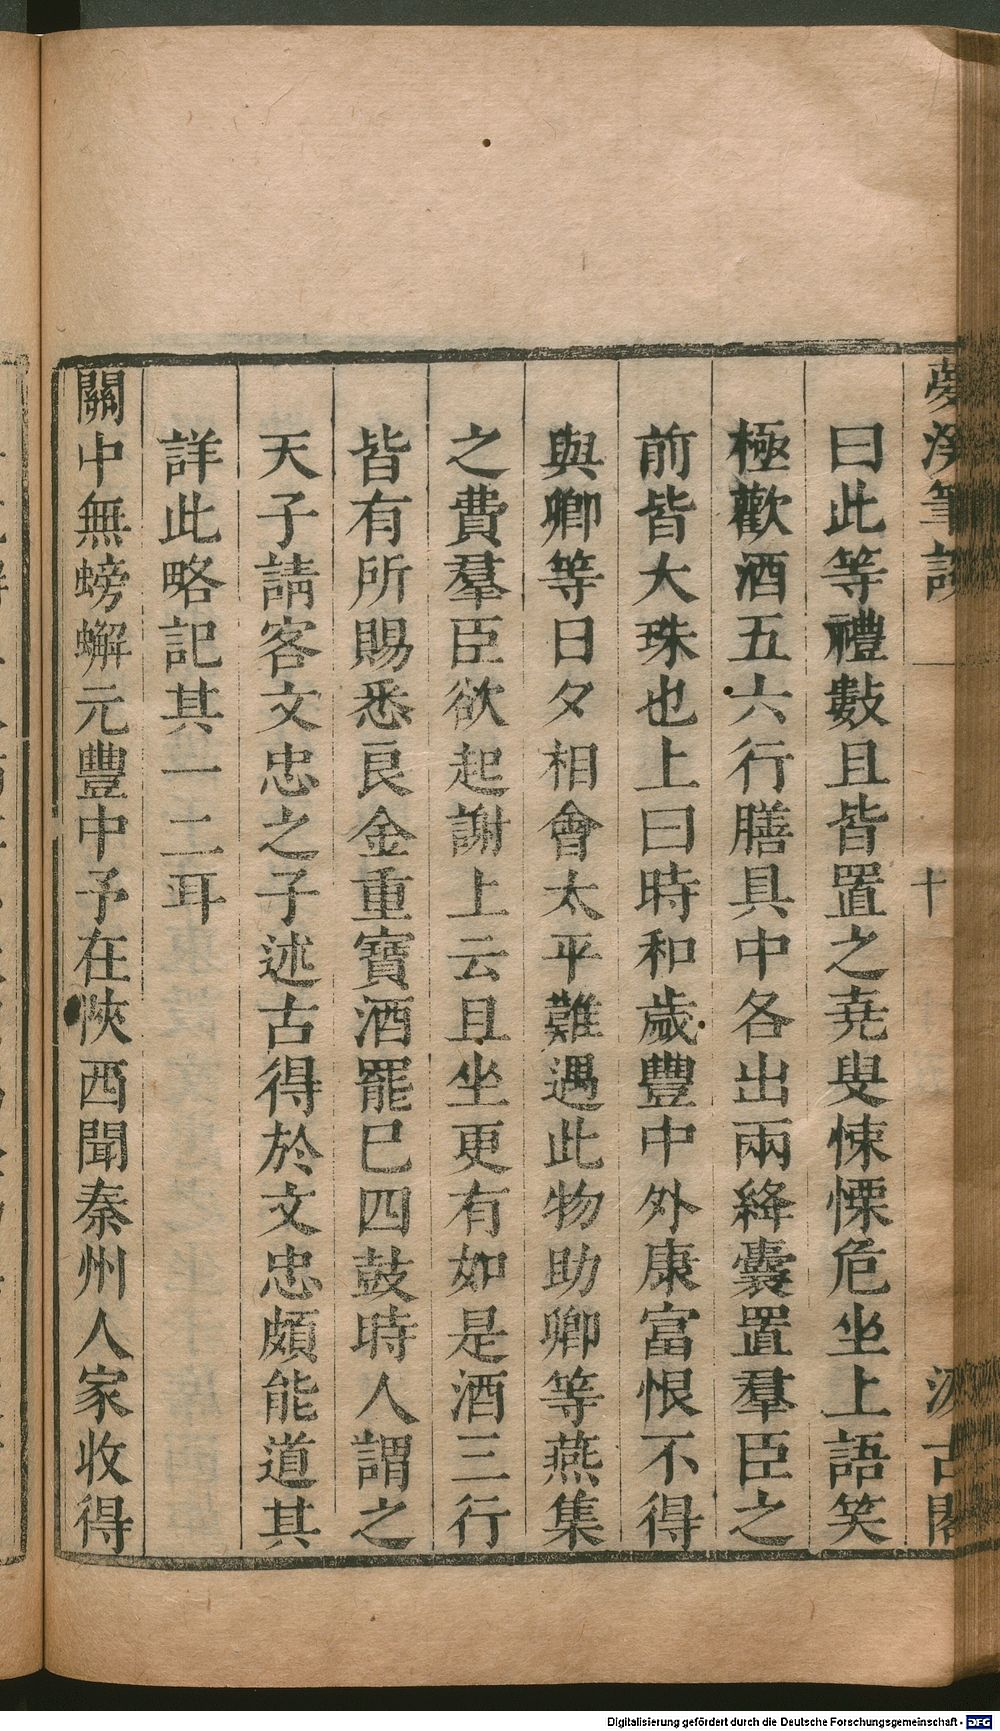 夢溪筆談 十 汲古閣
曰此等禮數且皆置之堯叟悚慄危坐上語笑
極歡酒五六行膳具中各出兩絳囊置羣臣之
前皆大珠也上曰時和歲豐中外康富恨不得
與卿等日夕相會太平難遇此物助卿等燕集
之費羣臣欲起謝上云且坐更有如是酒三行
皆有所賜悉良金重寶酒罷巳四鼓時人謂之
天子請客文忠之子述古得於文忠頗能道其
詳此略記其一二耳
關中無螃蠏元豐中予在陝西聞秦州人家收得
Digitalisierung gefördert durch die Deutsche Forschungsgemeinschaft - DFG